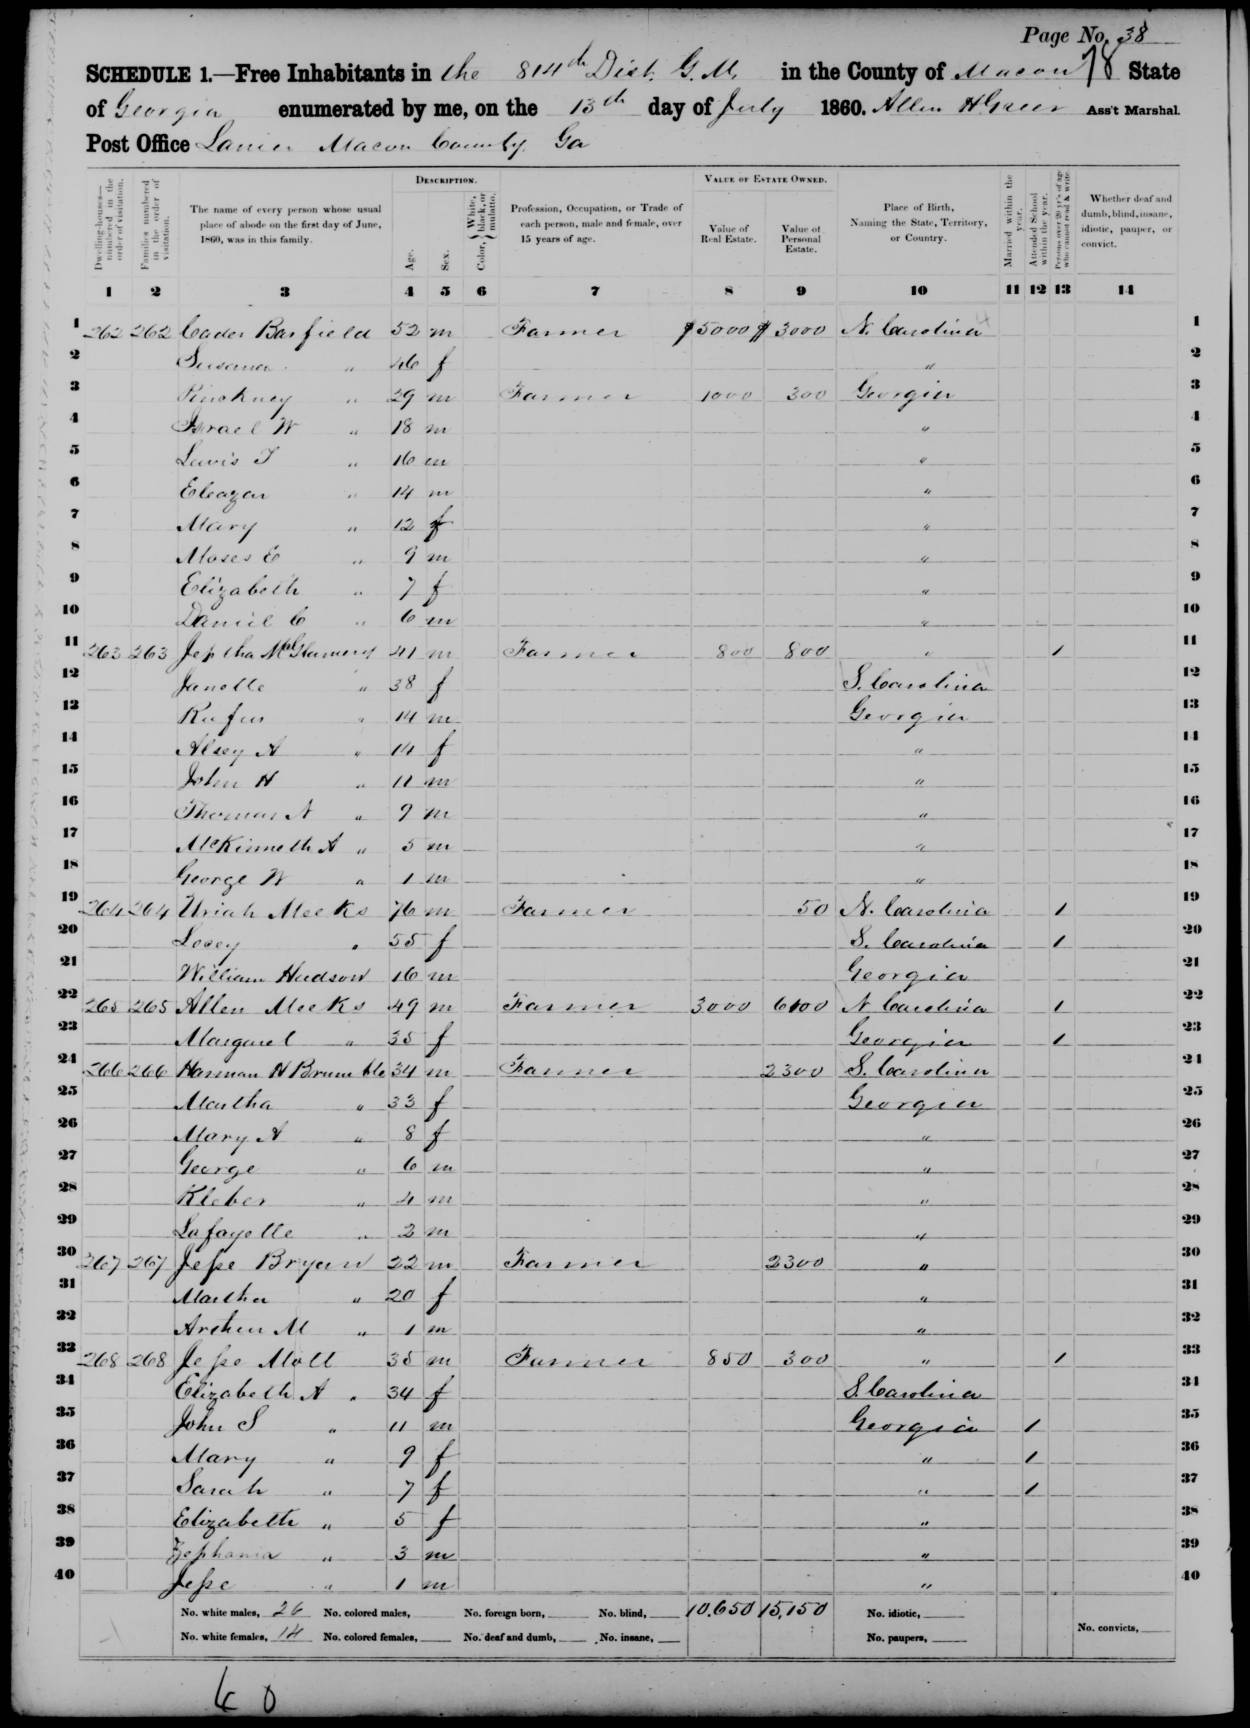 Page No. 38
78
SCHEDULE 1.—Free Inhabitants in the 814th Dist. G. M. in the County of Macon State
of Georgia enumerated by me, on the 13th day of July 1860. Allen H Greer Ass't Marshal.
Post Office Lanier Macon County Ga
DESCRIPTION.
VALUE OF ESTATE OWNED.
Dwelling-houses—numbered in the order of visitation.
Families numbered in the order of visitation.
The name of every person whose usual place of abode on the first day of June, 1860, was in this family.
Age.
Sex.
Color, { White, black, or mulatto.
Profession, Occupation, or Trade of each person, male and female, over 15 years of age.
Value of Real Estate.
Value of Personal Estate.
Place of Birth, Naming the State, Territory, or Country.
Married within the year.
Attended School within the year.
Persons over 20 y'rs of age who cannot read & write.
Whether deaf and dumb, blind, insane, idiotic, pauper, or convict.
1 2 3 4 5 6 7 8 9 10 11 12 13 14
1 262 262 Cader Barfield 52 m Farmer $5000 $3000 N. Carolina 1
2 Susana " 46 f " 2
3 Pinckney " 29 m Farmer 1000 300 Georgia 3
4 Israel W " 18 m " 4
5 Lewis T " 16 m " 5
6 Eleazar " 14 m " 6
7 Mary " 12 f " 7
8 Moses E " 9 m " 8
9 Elizabeth " 7 f " 9
10 Daniel C " 6 m " 10
11 263 263 Jeptha 41 m Farmer 800 800 " 1 11
12 Janette " 38 f S. Carolina 12
13 Rufus " 14 m Georgia 13
14 Alsey A " 14 f " 14
15 John H " 11 m " 15
16 Thomas N " 9 m " 16
17 McKinneth A " 5 m " 17
18 George W " 1 m " 18
19 264 264 Uriah Meeks 76 m Farmer 50 N. Carolina 1 19
20 Locey " 55 f S. Carolina 1 20
21 William Hudson 16 m Georgia 21
22 265 265 Allen Meeks 49 m Farmer 3000 6100 N Carolina 1 22
23 Margaret " 35 f Georgia 1 23
24 266 266 Harman H Brumble 34 m Farmer 2300 S. Carolina 24
25 Martha " 33 f Georgia 25
26 Mary A " 8 f " 26
27 George " 6 m " 27
28 Kleber " 4 m " 28
29 Lafayette " 2 m " 29
30 267 267 Jesse Bryan 22 m Farmer 2300 " 30
31 Martha " 20 f " 31
32 M " 1 m " 32
33 268 268 Jesse Mott 35 m Farmer 850 300 " 1 33
34 Elizabeth A " 34 f S. Carolina 34
35 John S " 11 m Georgia 1 35
36 Mary " 9 f " 1 36
37 Sarah " 7 f " 1 37
38 Elizabeth " 5 f " 38
39 Zephania " 3 m " 39
40 Jesse " 1 m " 40
No. white males, 26 No. colored males, No. foreign born, No. blind, 10,650 15,150 No. idiotic,
No. white females, 14 No. colored females, No. deaf and dumb, No. insane, No. paupers, No. convicts,
40